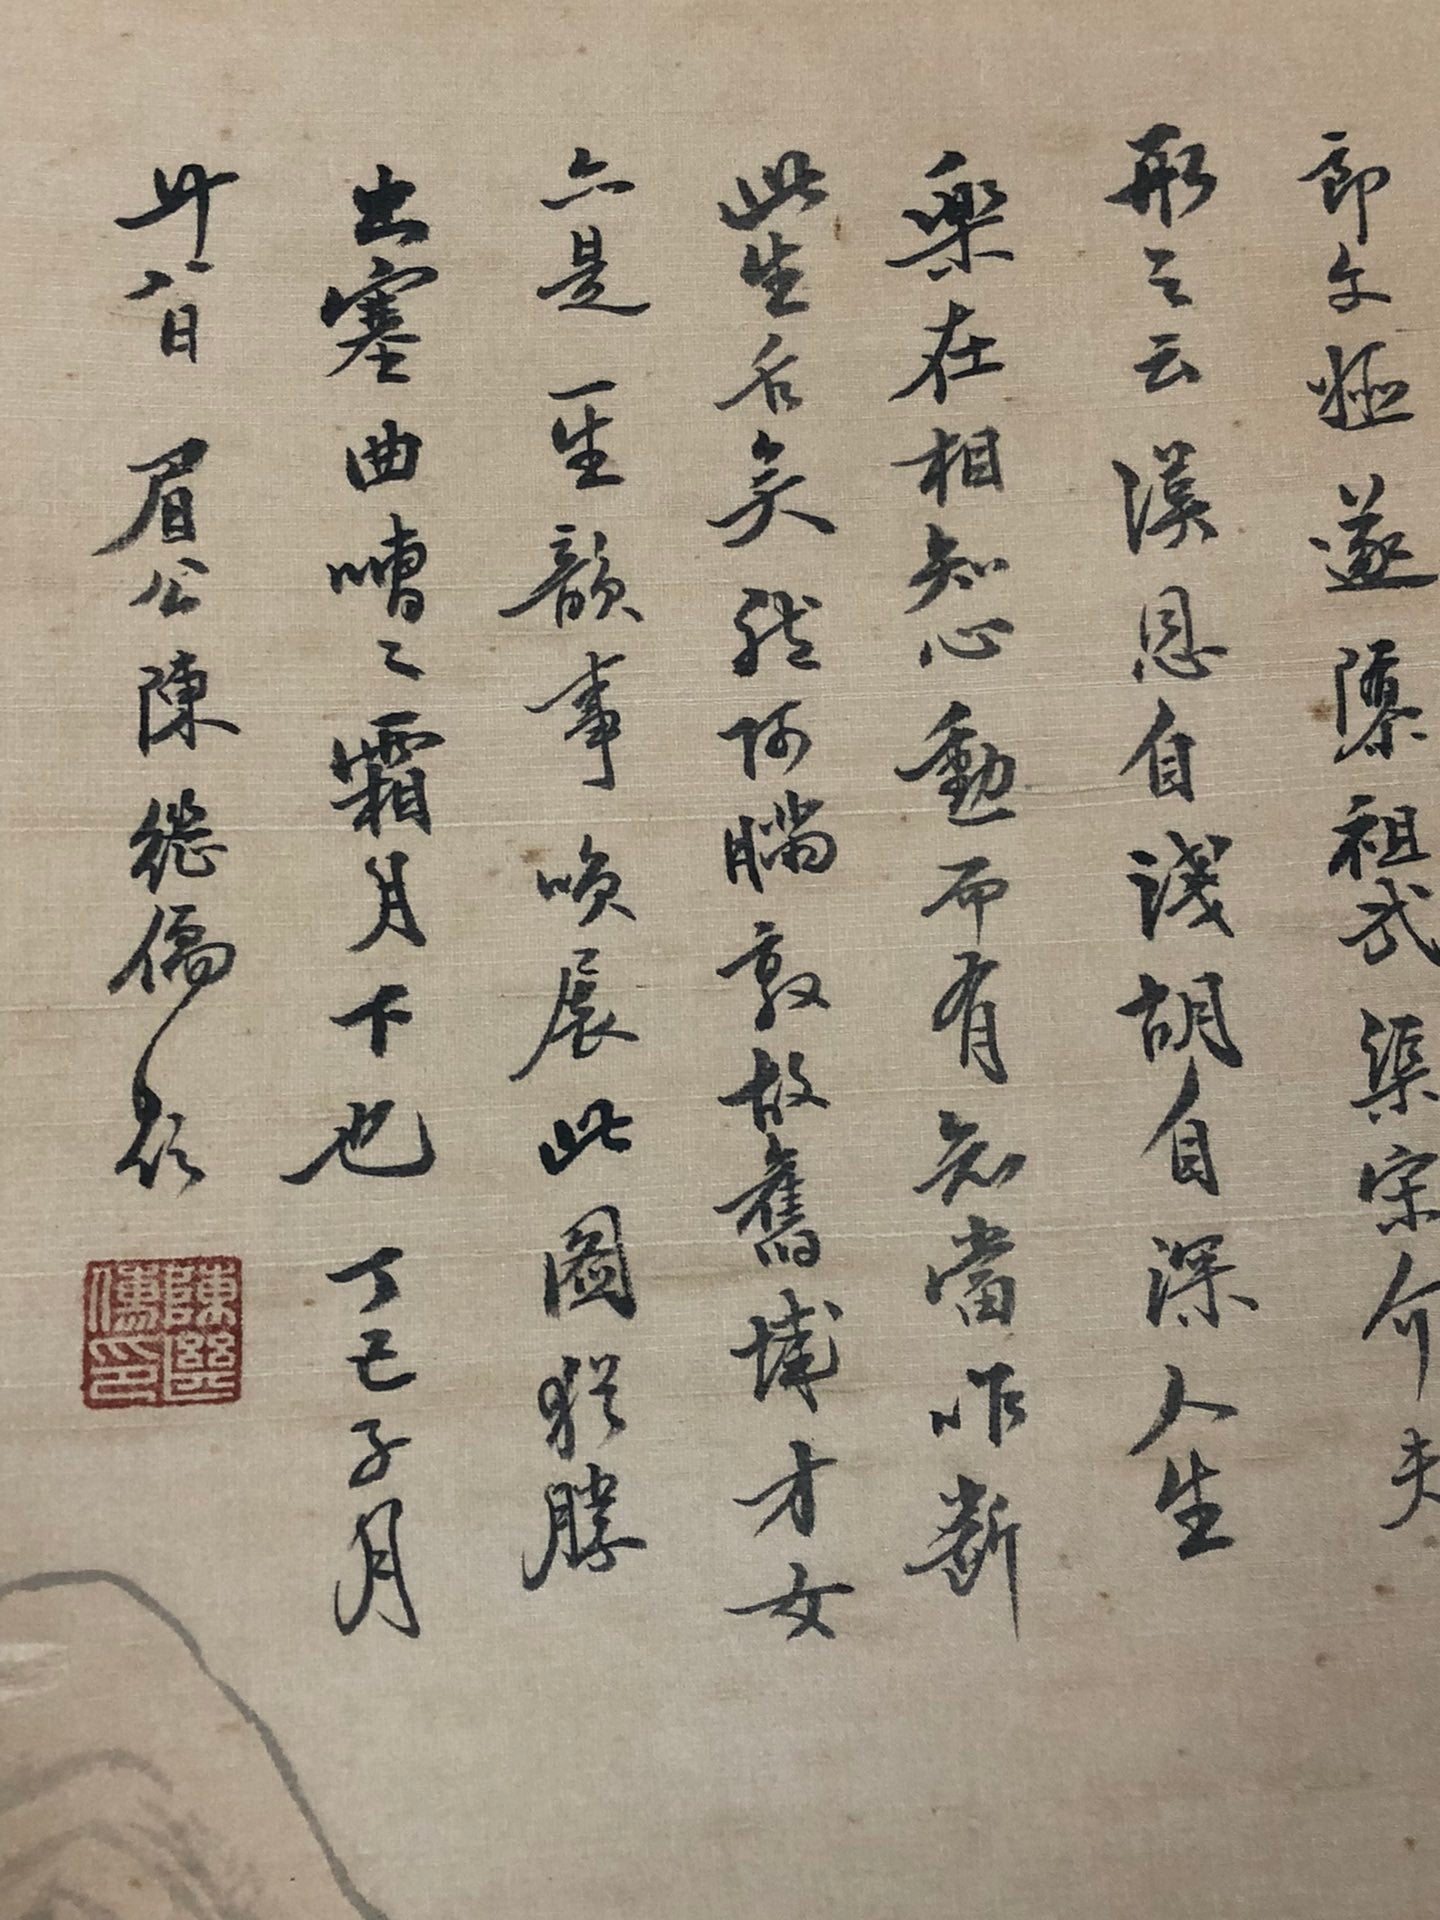 郎文姬遂隳祖武渠宗介夫
形之云漢恩自淺胡自深人生
樂在相知心動而有知當咋斷
此生舌矣然阿瞞敦故舊城才女
亦是一生韻事喚展此圖猶勝
出塞曲嘈々霜月下也 丁巳子月
廿八日 眉公陳継儒題
陳繼儒印